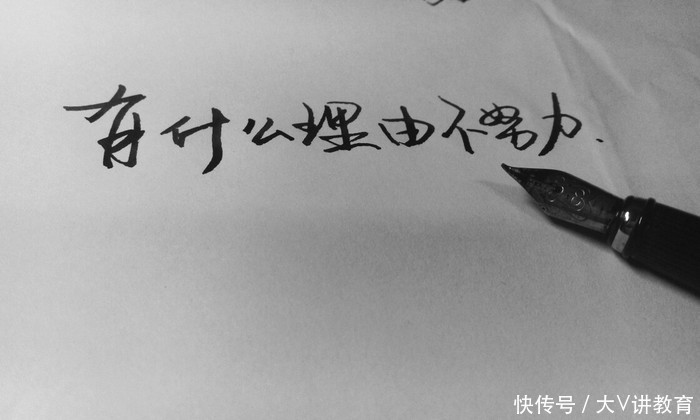 有什么理由不努力.
快传号 / 大V讲教育